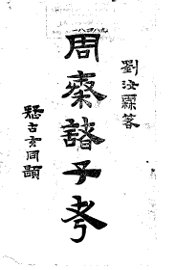 劉汝霖
周秦諸子考
疑古玄同題